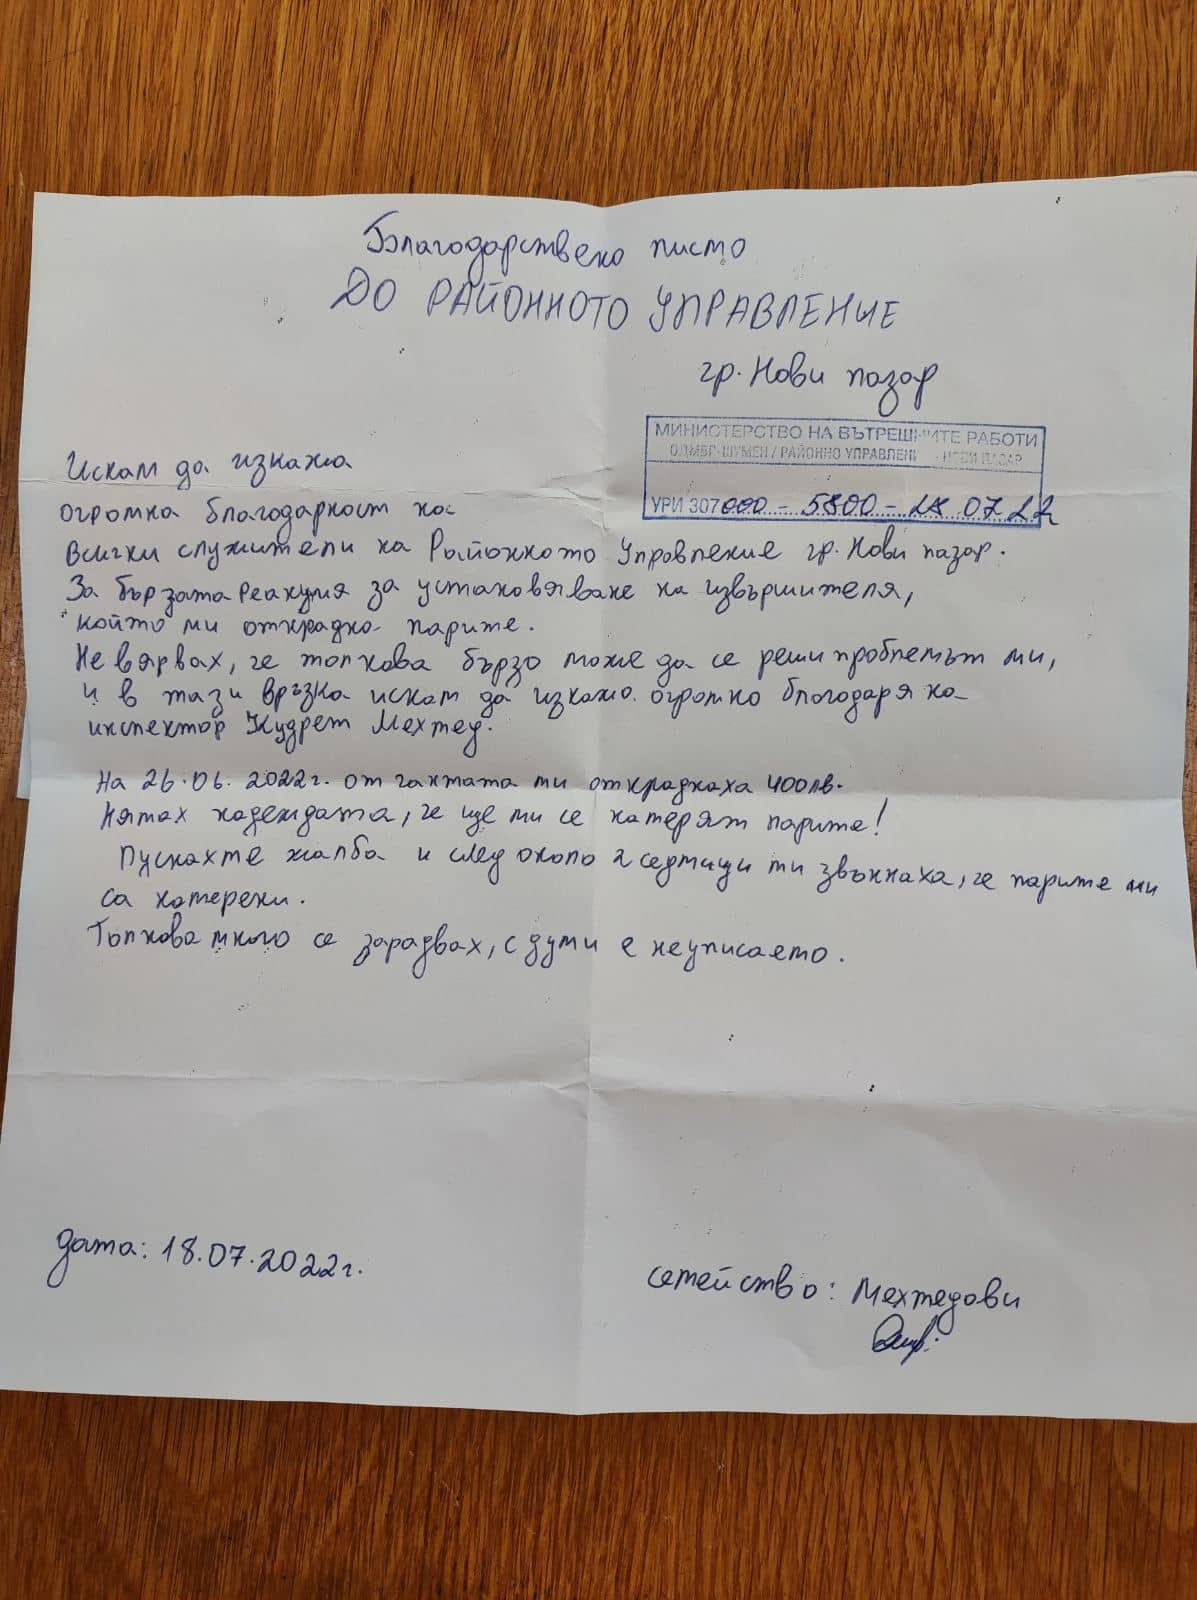 Благодарствено писмо
ДО РАЙОННОТО УПРАВЛЕНИЕ
гр. Нови пазар
МИНИСТЕРСТВО НА ВЪТРЕШНИТЕ РАБОТИ
ОДМВР-ШУМЕН / РАЙОННО УПРАВЛЕНИЕ - НОВИ ПАЗАР
УРИ 307000 - 5800 - 18.07.22
Искам да изкажа
огромна благодарност на
всички служители на Районното Управление гр. Нови пазар.
За бързата Реакция за установяване на извършителя,
който ми открадна парите.
Не вярвах, че толкова бързо може да се реши проблемът ми,
и в тази връзка искам да изкажа огромно благодаря на
инспектор Кудрет Мехмед.
На 26.06.2022г. от чантата ми откраднаха 400лв.
Нямах надеждата, че ще ми се намерят парите!
Пуснахме жалба и след около 2 седмици ми звъннаха, че парите ми
са намерени.
Толкова много се зарадвах, с думи е неуписаемо.
дата: 18.07.2022г.
семейство: Мехмедови